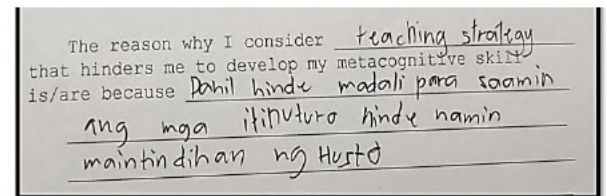 The reason why I consider teaching strategy
that hinders me to develop my metacognitive skill
is/are because Dahil hinde madali para saamin
ang mga itinuturo hinde namin
maintindihan ng Husto